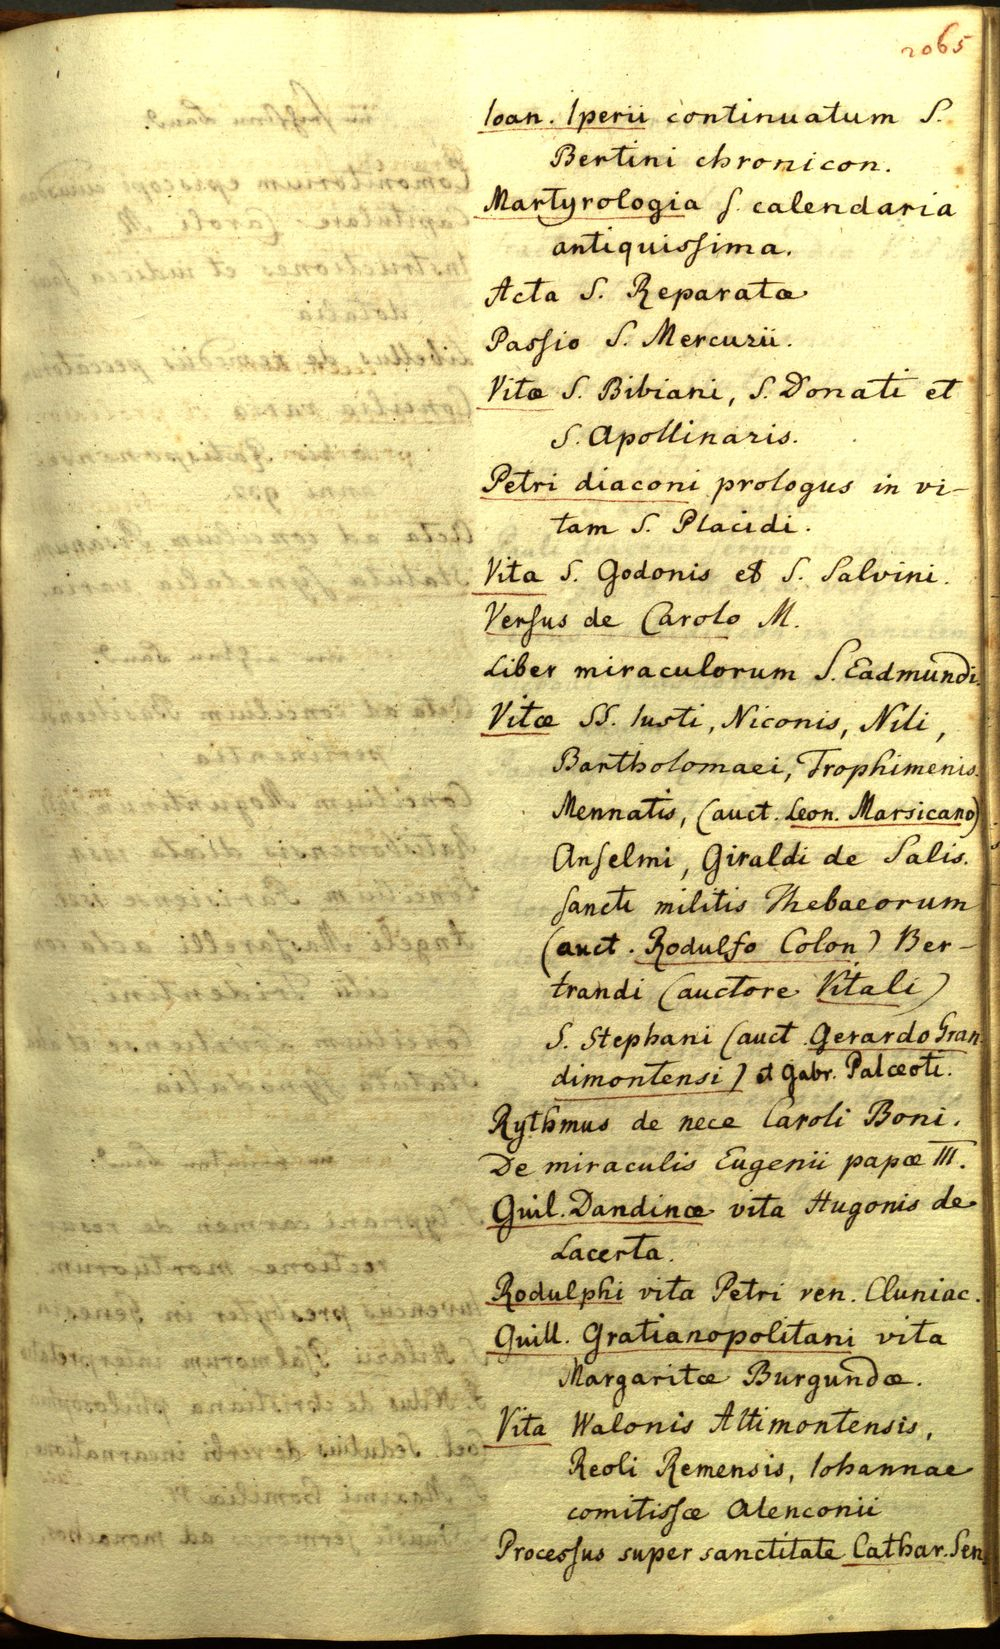 2065
Ioan. Iperii continuatum S.
Bertini chronicon.
Martyrologia s. calendaria
antiquissima.
Acta S. Reparatæ
Passio S. Mercurii.
Vitæ S. Bibiani, S. Donati et
S. Apollinaris.
Petri diaconi prologus in vi-
tam S. Placidi.
Vita S. Godonis et S. Salvini.
Versus de Carolo M.
Liber miraculorum S. Eadmundi.
Vitæ SS. Iusti, Niconis, Nili,
Bartholomaei, Trophimenis.
Mennatis, (auct. Leon. Marsicano)
Anselmi, Giraldi de Salis.
sancti militis Thebaeorum
(auct. Rodulfo Colon) Ber-
trandi (auctore Vitali)
S. Stephani (auct Gerardo Gran
dimontensi) et Gabr. Palæoti.
Rythmus de nece Caroli Boni.
De miraculis Eugenii papæ III.
Guil. Dandinæ vita Hugonis de
Lacerta.
Rodulphi vita Petri ven. Cluniac.
Guill. Gratianopolitani vita
Margaritæ Burgundæ.
Vita Walonis Altimontensis,
Reoli Remensis, Iohannae
comitissæ Alenconii
Processus super sanctitate Cathar. Sen.